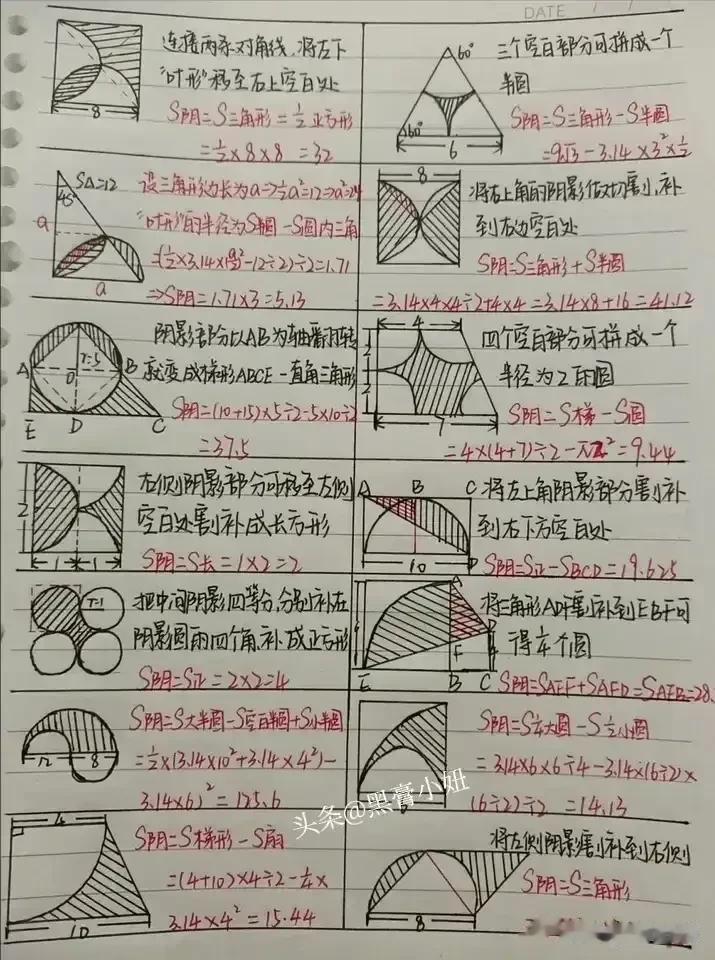 DATE
连接两条对角线,将左下
"叶形"移至右上空白处
S阴=S三角形=½正方形
=½×8×8 =32
8
60°
60°
6
三个空白部分可拼成一个
半圆
S阴=S三角形-S半圆
=9√3-3.14×3²×½
S△=12
45°
a
a
设三角形边长为a=>½a²=12=>a²=24
"叶形"的半径为S半圆-S圆内三角
÷2=1.71
=>S阴=1.71×3=5.13
8
将右上角的阴影做切割,补
到右边空白处
S阴=S三角形+S半圆
=3.14×4×4÷2+4×4=3.14×8+16=41.12
A
O
r=5
B
E
D
C
阴影部分以AB为轴翻转
就变成梯形ABCE-直角三角形
S阴=(10+15)×5÷2-5×10÷2
=37.5
4
2
2
7
四个空白部分可拼成一个
半径为2的圆
S阴=S梯-S圆
=4×(4+7)÷2-π2²=9.44
2
1
1
右侧阴影部分可移至左侧
空白处割补成长方形
S阴=S长=1×2=2
A
B
C
D
10
将左上角阴影部分割补
到右下方空白处
S阴=S正-SBCD=19.625
r=1
把中间阴影四等分,分别补在
阴影圆的四个角,补成正方形
S阴=S正=2×2=4
A
D
F
4
E
B
C
将三角形ADF割补到EBF可
得¼个圆
S阴=SAEF+SAFD=SAEB=28.
12
8
S阴=S大半圆-S空白半圆+S小半圆
=½×(3.14×10²+3.14×4²)-
3.14×6)²=125.6
S阴=S¼大圆-S½小圆
=3.14×6×6÷4-3.14×(6÷2)×
(6÷2)÷2 =14.13
头条@黑膏小妞
4
10
S阴=S梯形-S扇
=(4+10)×4÷2-¼×
3.14×4²=15.44
8
将左侧阴影割补到右侧
S阴=S三角形